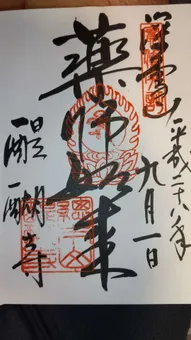 深雪山
平成二十八年
九月一日
藥師如来
醍醐寺